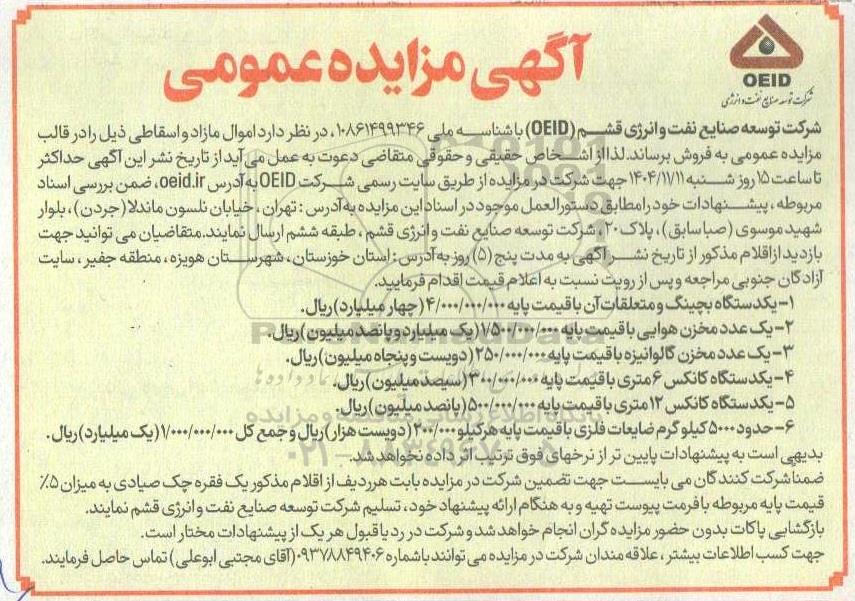 آگهی مزایده عمومی
OEID
شرکت توسعه صنایع نفت و انرژی
شرکت توسعه صنایع نفت و انرژی قشم (OEID) با شناسه ملی ۱۰۸۶۱۴۹۹۳۴۶، در نظر دارد اموال مازاد و اسقاطی ذیل را در قالب
مزایده عمومی به فروش برساند. لذا از اشخاص حقیقی و حقوقی متقاضی دعوت به عمل می آید از تاریخ نشر این آگهی حداکثر
تا ساعت ۱۵ روز شنبه ۱۴۰۴/۱۱/۱۱ جهت شرکت در مزایده از طریق سایت رسمی شرکت OEID به آدرس oeid.ir، ضمن بررسی اسناد
مربوطه، پیشنهادات خود را مطابق دستورالعمل موجود در اسناد این مزایده به آدرس: تهران، خیابان نلسون ماندلا (جردن)، بلوار
شهید موسوی (صبا سابق)، پلاک ۲۰، شرکت توسعه صنایع نفت و انرژی قشم، طبقه ششم ارسال نمایند. متقاضیان می توانید جهت
بازدید از اقلام مذکور از تاریخ نشر آگهی به مدت پنج (۵) روز به آدرس: استان خوزستان، شهرستان هویزه، منطقه جفیر، سایت
آزادگان جنوبی مراجعه و پس از رویت نسبت به اعلام قیمت اقدام فرمایید.
۱- یکدستگاه بچینگ و متعلقات آن با قیمت پایه ۴/۰۰۰/۰۰۰/۰۰۰ (چهار میلیارد) ریال.
۲- یک عدد مخزن هوایی با قیمت پایه ۱/۵۰۰/۰۰۰/۰۰۰ (یک میلیارد و پانصد میلیون) ریال.
۳- یک عدد مخزن گالوانیزه با قیمت پایه ۲۵۰/۰۰۰/۰۰۰ (دویست و پنجاه میلیون) ریال.
۴- یکدستگاه کانکس ۶ متری با قیمت پایه ۳۰۰/۰۰۰/۰۰۰ (سیصد میلیون) ریال.
۵- یکدستگاه کانکس ۱۲ متری با قیمت پایه ۵۰۰/۰۰۰/۰۰۰ (پانصد میلیون) ریال.
۶- حدود ۵۰۰۰ کیلوگرم ضایعات فلزی با قیمت پایه هر کیلو ۲۰۰/۰۰۰ (دویست هزار) ریال و جمع کل ۱/۰۰۰/۰۰۰/۰۰۰ (یک میلیارد) ریال.
بدیهی است به پیشنهادات پایین تر از نرخهای فوق ترتیب اثر داده نخواهد شد.
ضمنا شرکت کنندگان می بایست جهت تضمین شرکت در مزایده بابت هر ردیف از اقلام مذکور یک فقره چک صیادی به میزان ۵٪
قیمت پایه مربوطه با فرمت پیوست تهیه و به هنگام ارائه پیشنهاد خود، تسلیم شرکت توسعه صنایع نفت و انرژی قشم نمایند.
بازگشایی پاکات بدون حضور مزایده گران انجام خواهد شد و شرکت در رد یا قبول هر یک از پیشنهادات مختار است.
جهت کسب اطلاعات بیشتر، علاقه مندان شرکت در مزایده می توانند با شماره ۰۹۳۷۸۸۴۹۴۰۶ (آقای مجتبی ابوعلی) تماس حاصل فرمایند.